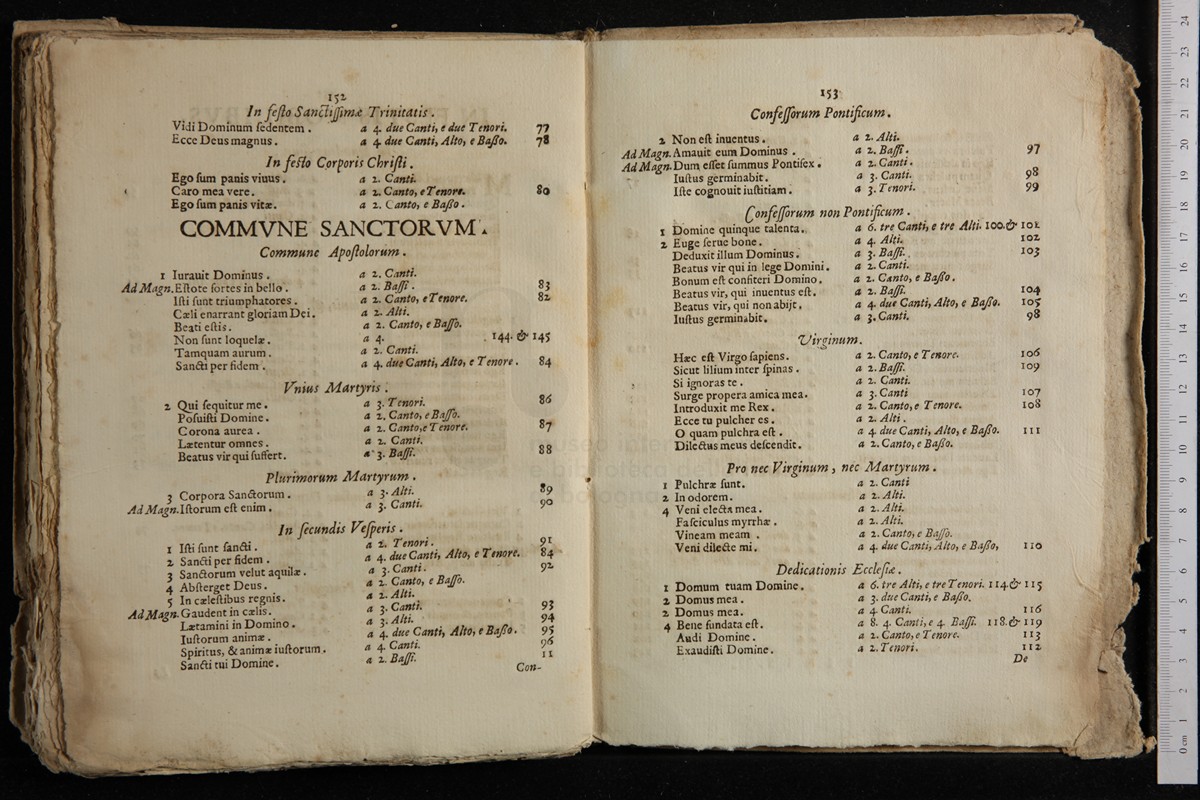 152
In feſto Sanctiſſimæ Trinitatis.
Vidi Dominum ſedentem. a 4. due Canti, e due Tenori. 77
Ecce Deus magnus. a 4. due Canti, Alto, e Baſſo. 78
In feſto Corporis Chriſti.
Ego ſum panis viuus. a 2. Canti.
Caro mea vere. a 2. Canto, e Tenore. 80
Ego ſum panis vitæ. a 2. Canto, e Baſſo.
COMMVNE SANCTORVM.
Commune Apoſtolorum.
1 Iurauit Dominus. a 2. Canti.
Ad Magn. Eſtote fortes in bello. a 2. Baſſi. 83
Iſti ſunt triumphatores. a 2. Canto, e Tenore. 82
Cæli enarrant gloriam Dei. a 2. Alti.
Beati eſtis. a 2. Canto, e Baſſo.
Non ſunt loquelæ. a 4. 144. & 145
Tamquam aurum. a 2. Canti.
Sancti per fidem. a 4. due Canti, Alto, e Tenore. 84
Vnius Martyris.
2 Qui ſequitur me. a 3. Tenori. 86
Poſuiſti Domine. a 2. Canto, e Baſſo.
Corona aurea. a 2. Canto, e Tenore. 87
Lætentur omnes. a 2. Canti.
Beatus vir qui ſuffert. a 3. Baſſi. 88
Plurimorum Martyrum.
3 Corpora Sanctorum. a 3. Alti. 89
Ad Magn. Iſtorum eſt enim. a 3. Canti. 90
In ſecundis Veſperis.
1 Iſti ſunt ſancti. a 2. Tenori. 91
2 Sancti per fidem. a 4. due Canti, Alto, e Tenore. 84
3 Sanctorum velut aquilæ. a 3. Canti. 92
4 Abſterget Deus. a 2. Canto, e Baſſo.
5 In cæleſtibus regnis. a 2. Alti.
Ad Magn. Gaudent in cælis. a 3. Canti. 93
Lætamini in Domino. a 3. Alti. 94
Iuſtorum animæ. a 4. due Canti, Alto, e Baſſo. 95
Spiritus, & animæ iuſtorum. a 4. Canti. 96
Sancti tui Domine. a 2. Baſſi. 11
Con-
153
Confeſſorum Pontificum.
2 Non eſt inuentus. a 2. Alti.
Ad Magn. Amauit eum Dominus. a 2. Baſſi. 97
Ad Magn. Dum eſſet ſummus Pontifex. a 2. Canti.
Iuſtus germinabit. a 3. Canti. 98
Iſte cognouit iuſtitiam. a 3. Tenori. 99
Confeſſorum non Pontificum.
1 Domine quinque talenta. a 6. tre Canti, e tre Alti. 100. & 101
2 Euge ſerue bone. a 4. Alti. 102
Deduxit illum Dominus. a 3. Baſſi. 103
Beatus vir qui in lege Domini. a 2. Canti.
Bonum eſt confiteri Domino. a 2. Canto, e Baſſo.
Beatus vir, qui inuentus eſt. a 2. Baſſi. 104
Beatus vir, qui non abijt. a 4. due Canti, Alto, e Baſſo. 105
Iuſtus germinabit. a 3. Canti. 98
Virginum.
Hæc eſt Virgo ſapiens. a 2. Canto, e Tenore. 106
Sicut lilium inter ſpinas. a 2. Baſſi. 109
Si ignoras te. a 2. Canti.
Surge propera amica mea. a 3. Canti 107
Introduxit me Rex. a 2. Canto, e Tenore. 108
Ecce tu pulcher es. a 2. Alti.
O quam pulchra eſt. a 4. due Canti, Alto, e Baſſo. 111
Dilectus meus deſcendit. a 2. Canto, e Baſſo.
Pro nec Virginum, nec Martyrum.
1 Pulchræ ſunt. a 2. Canti
2 In odorem. a 2. Alti.
4 Veni electa mea. a 2. Alti.
Faſciculus myrrhæ. a 2. Alti.
Vineam meam. a 2. Canto, e Baſſo.
Veni dilecte mi. a 4. due Canti, Alto, e Baſſo, 110
Dedicationis Eccleſiæ.
1 Domum tuam Domine. a 6. tre Alti, e tre Tenori. 114. & 115
2 Domus mea. a 3. due Canti, e Baſſo.
2 Domus mea. a 4. Canti. 116
4 Bene fundata eſt. a 8. 4. Canti, e 4. Baſſi. 118. & 119
Audi Domine. a 2. Canto, e Tenore. 113
Exaudiſti Domine. a 2. Tenori. 112
De
0 cm 1 2 3 4 5 6 7 8 9 10 11 12 13 14 15 16 17 18 19 20 21 22 23 24